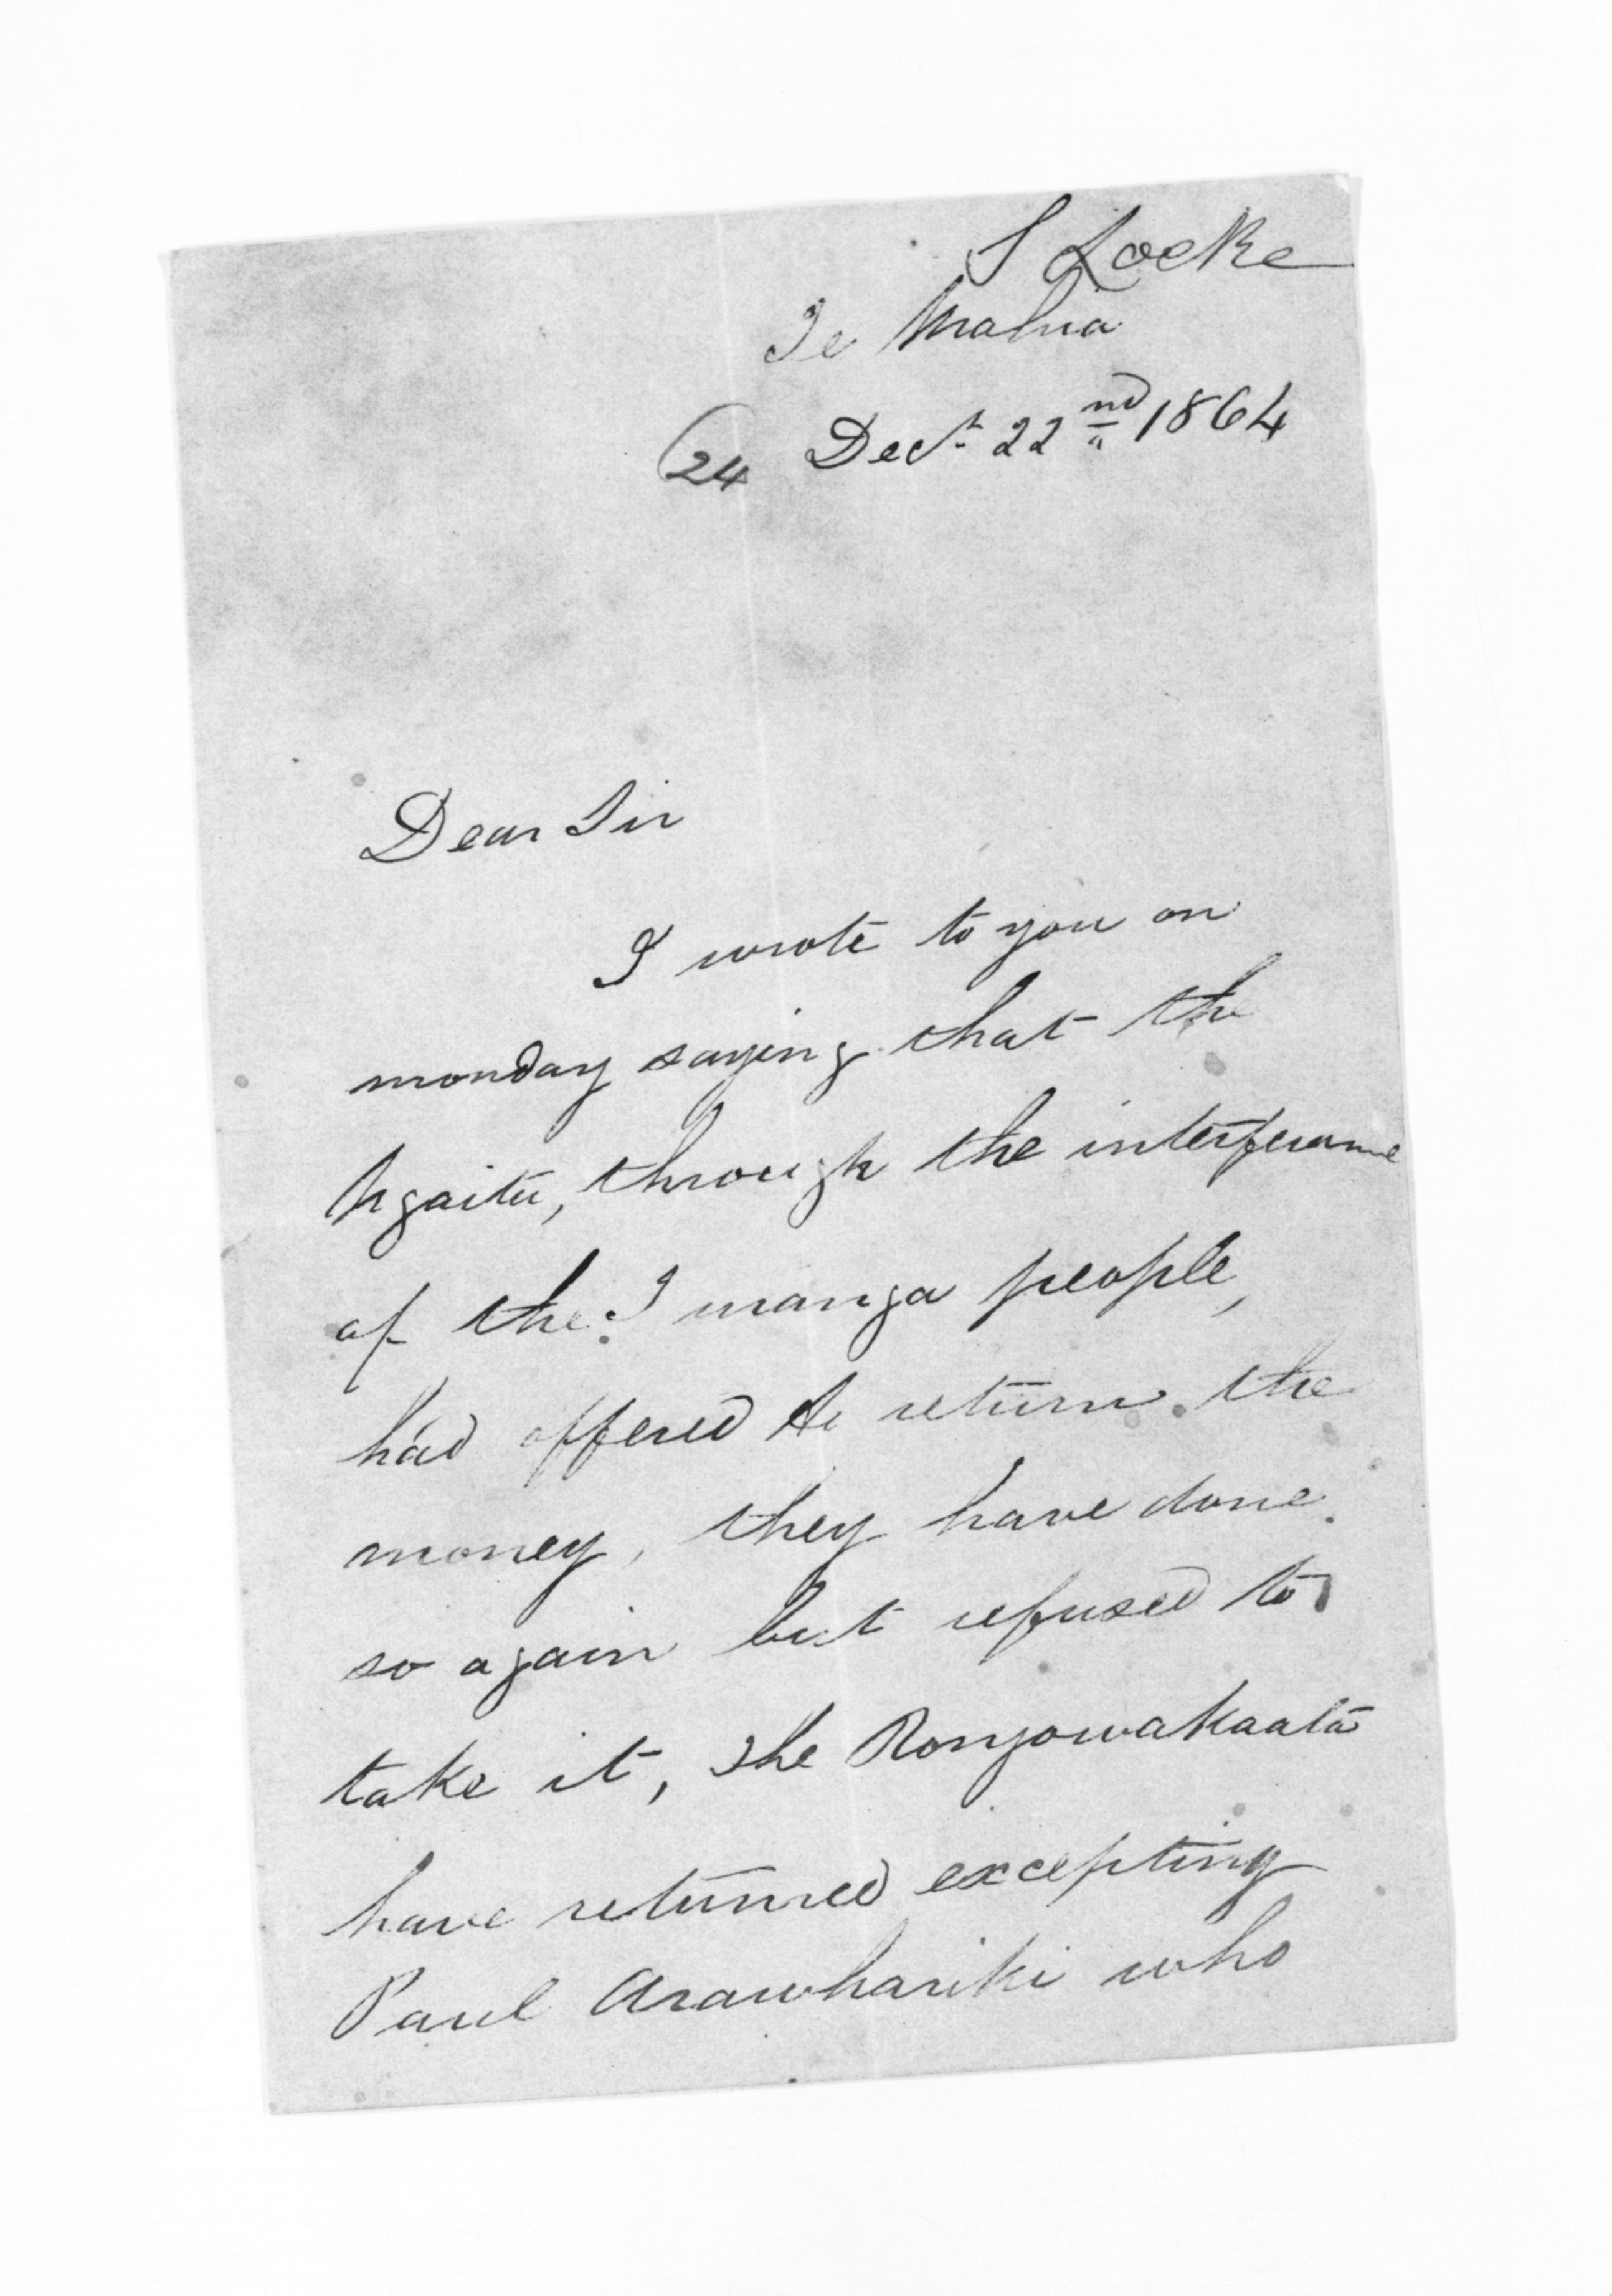 S Locke
Te Mahia
24 Decr 22nd 1864
Dear Sir
I wrote to you on
monday saying that the
Ngaitu, through the interferance
of the I manga people,
had offered to return the
money, they have done
so again but refused to
take it, the Rongowakaata
have returned excepting
Paul Arawhariki who